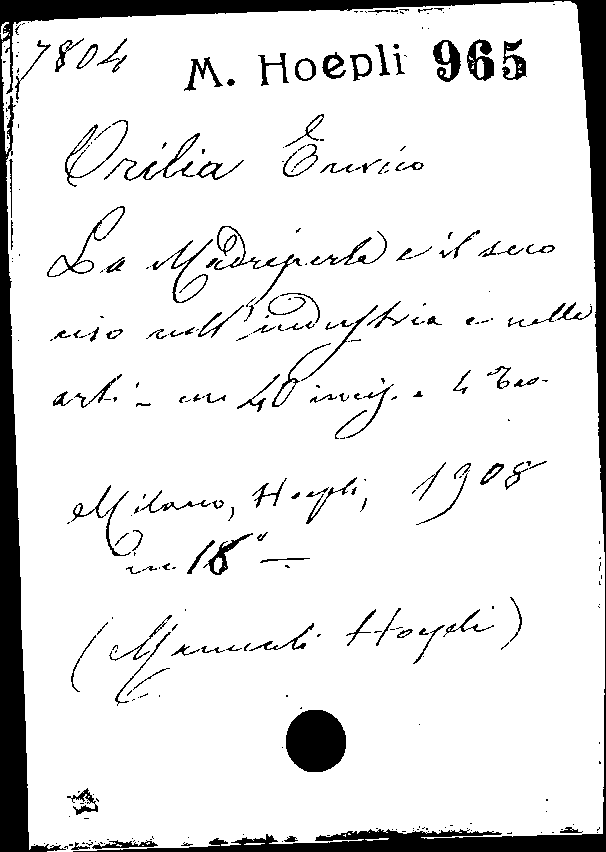 7804 M. Hoepli 965
Orilia Enrico
La Madreperla e il suo
uso nell'industria e nelle
arti - con 40 incis. e 4 Tav.
Milano, Hoepli, 1908
in 18° —
(Manuali Hoepli)